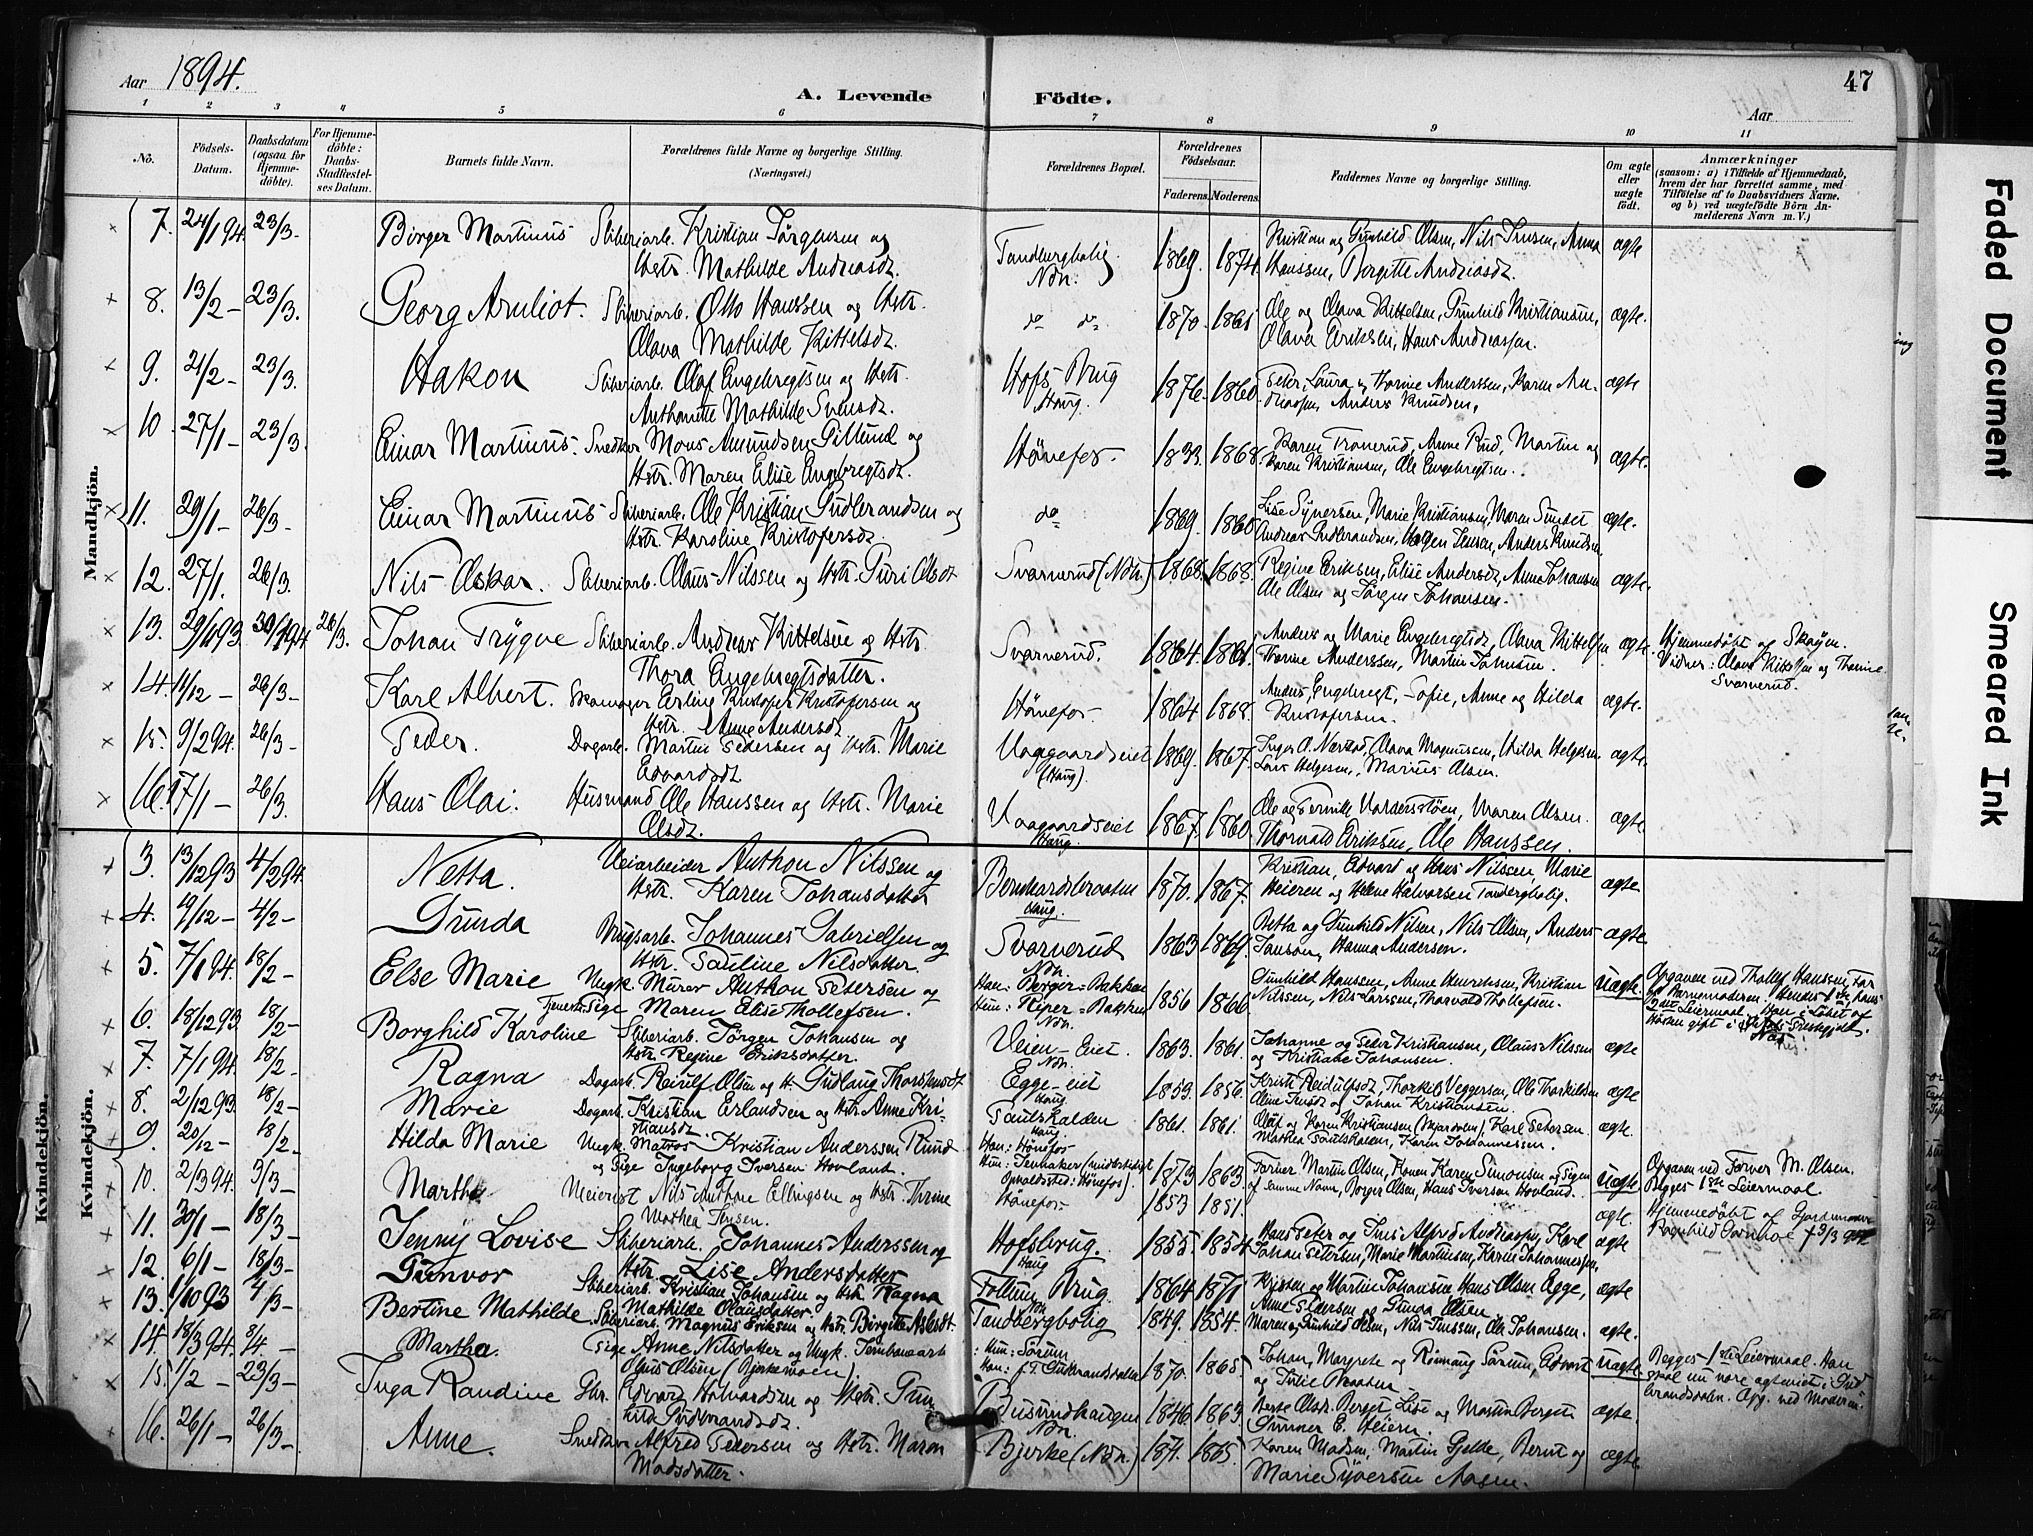 Aar 1894.
A. Levende Födte.
Aar
47
1 2 3 4 5 6 7 8 9 10 11
No.
Födsels-Datum.
Daabsdatum (ogsaa for Hjemme-döbte).
For Hjemme-döbte: Daabs-Stadfæstel-ses Datum.
Barnets fulde Navn.
Forældrenes fulde Navne og borgerlige Stilling.
(Næringsvei.)
Forældrenes Bopæl.
Forældrenes Födselsaar.
Faderens. Moderens.
Faddernes Navne og borgerlige Stilling.
Om ægte eller uægte født.
Anmærkninger
(saasom: a) i Tilfælde af Hjemmedaab, hvem der har forrettet samme, med Tilföielse af to Daabsvidners Navne, og b) ved uægtefödte Börn An-melderens Navn m. V.)
Mandkjön.
7. 24/1 94. 23/3- Birger Martinus Sliberiarb. Kristian Jörgensen og Tandbergbolig 1869. 1874. Kristian og Gunhild Olsen, Nils Jensen, Anna ægte
Hstr. Mathilde Andreasdt. Ndn. Hanssen, Borgitte Andreasdt.
8. 13/2- 23/3. Georg Arnliot. Sliberiarb. Otto Hanssen og Hstr. do do 1870. 1861 Ole og Olava Kittelsen, Gunhild Kristiansen, ægte.
Olava Mathilde Kittelsdt. Olava Eriksen, Hans Andreassen.
9. 21/2- 23/3. Hakon Sliberiarb. Olaf Engebregtsen og Hstr. Hofs-Brug 1876. 1860. Peter, Laura og Thorine Anderssen, Karen An- ægte
Anthonette Mathilde Svensdt. Haug. dreassen, Anders Knudsen,
10. 27/1- 23/3 Einar Martinus- Snedker Mons Amundsen Gillund og Hönefos- 1833. 1868. Karen Tronerud, Anne Rud, Martin og ægte.
Hstr. Maren Elise Engebregtsdt. Karen Kristiansen, Ole Engebregtsen.
11. 29/1- 26/3- Einar Martinus- Sliberiarb. Ole Kristian Gudbrandsen og do 1869. 1860 Lise Syversen, Marie Kristiansen, Maren Sundet ægte.
Hstr. Karoline Kristofersdt. Andreas Gudbrandsen, Jensen, Anders Knudsen
12. 27/1. 26/3. Nils Oskar. Sliberiarb. Olaus Nilssen og Hstr. Guri Olsdt Svarverud (Ndn.) 1868. 1868. Regine Eriksen, Elise Andersdt, Anne Johansen ægte.
Ole Olsen og Jörgen Johansen.
13. 29/11 93. 30/1 94 26/3. Johan Trygve Sliberiarb. Andreas Kittelsen og Hstr. Svarverud. 1864. 1861. Anders og Marie Engebregtsdt, Olava Kittelsen ægte. Hjemmedöbt af Sköyen.
Thora Engebregtsdatter. Thorine Anderssen, Martin Johnsen. Vidner: Olava Kittelsen og Thorine
Svarverud.
14. 11/12- 26/3- Karl Albert. Skomager Erling Kristofer Kristofersen og Hönefos- 1864. 1868. Anders, Engebregt, Sofie, Anne og Hilda ægte.
Hstr. Anne Andersdt Kristofersen.
15. 9/2 94. 26/3- Peder. Dagarb. Martin Pedersen og Hstr. Marie Vaagaardseiet 1869. 1867. Inger A. Nerstad, Olava Magnussen, Hilda Helgesen ægte.
Edvardsdt (Haug). Lars Helgesen, Marius Olsen.
16. 17/1- 26/3. Hans Olai. Husmand Ole Hanssen og Hstr. Marie Vaagaardseiet 1867. 1860. Ole og Pernille, Maren Olsen. ægte
Olsdt. Haug. Thorvald Eriksen, Ole Hanssen.
Kvindekjön.
3. 13/12 93 4/2 94. Netta. Veiarbeider Anthon Nilssen og Bernhardsbraaten 1870. 1867. Kristian, Edvart og Hans Nilssen, Marie ægte
Hstr. Karen Johansdatter Haug. Heieren og Helene Halvorsen Tandbergbolig.
4. 19/12- 4/2- Gunda Brugsarb. Johannes Gabrielsen og Svarverud 1863 1869. Netta og Gunhild Nilsen, Nils Olsen, Anders ægte
Hstr. Pauline Nilsdatter. Ndn. Jansen, Hanna Andersen.
5. 7/1 94. 18/2- Else Marie Ungk. Murer Anthon Petersen og Han: Berger-Bakken 1856 1866 Gunhild Hanssen, Anne Henriksen, Kristian Uægte. Opgaven ved Thollef Hanssen, Far
Tjenestepige Maren Elise Thollefsen. Hun: Riper-Bakken Nilssen, Nils Larssen, Thorvald Thollefsen. til Barnemoderen. Hendes 1ste, hans
Ndn. 2det Leiermaal. Han i Löbet af
Hösten gift i
6. 18/12 93 18/2- Borghild Karoline Sliberiarb. Jörgen Johansen og Veien-Eiet. 1863. 1861. Johanne og Peder Kristiansen, Olaus Nilssen ægte
Hstr. Regine Eriksdatter. Ndn. og Kristiane Johansen.
7. 7/1 94. 18/2- Ragna Dagarb. Reiulf Olsen og H. Gudlaug Thorstensdt Egge-eiet 1853. 1856. Kristi Reidulfsdt, Thorkild Veggersen, Ole Thorkildsen ægte
Haug. Oline Jensdt og Johan Kristiansen.
8. 2/12 93. 18/2- Marie Dagarb. Kristian Erlandsen og Hstr. Anne Kri- Paulshalden 1861. 1861. Olaf og Karen Kristiansen, Karl Petersen ægte.
stiansdt. Haug. Mathea Paulshalden, Karen Johannessen.
9. 20/12- 18/2. Hilda Marie Ungk. Matros Kristian Anderssen Rund Han: Hönefos 1873 1863. Farver Martin Olsen, Konen Karen Simonsen og Pigen Uægte Opgaven ved Farver M. Olsen.
og Pige Ingeborg Iversen Hovland. Hun: Jevnaker (midlertidigt Opholdssted: Hönefos). af samme Navn, Borger Olsen, Hans Iversen Hovland. Begges 1ste Leiermaal.
10. 2/3 94. 3/3- Martha Meierist Nils Anthon Ellingsen og Hstr. Thrine Hönefos- 1853 1851. ægte. Hjemmedöbt af Gjordemoder
Mathea Jensen. Ragnhild Tornhol † 3/3 94
11. 30/1- 18/3- Jenny Lovise Sliberiarb. Johannes Anderssen og Hofsbrug. 1855. 1854. Hans Peter og Jens Alfred Andreassen, Karl ægte
Hstr. Lise Andersdatter Haug Johan Petersen, Marie Martinsen, Karen Johannessen,
12. 6/1- 18/3- Gunvor Sliberiarb. Kristian Johansen og Hstr. Ragna Follum Brug. 1864 1871 Kristen og Martin Johansen Hans Olsen Egge, ægte
Mathilde Olausdatter Ndn. Anne Pedersen og Gunda Olsen
13. 1/10 93 4/3- Bertine Mathilde Sliberiarb. Magnus Eriksen og Hstr. Birgitte Asledt. Tandbergbolig 1849. 1854. Maren og Gunhild Olsen, Nils Jenssen, Ole Johansen. ægte.
14. 18/3 94. 8/4- Martha. Pige Anne Nilsdatter og Ungk. Jernbanearb Hun: Sörum 1870. 1865. Johan, Margrete og Rönnaug Sörum, Edvart Uægte Begges 1ste Leiermaal. Han
Olsen (Bjerkemoen) Han: f. T. Gudbrandsdalen og Julie Braaten. skal nu være agteviet i Gud
brandsdalen. Opg. ved Moderen
15. 1/2- 23/3- Inga Randine Gbr. Edvard Halvardsen og Hstr. Gun Busundhaugen 1846. 1863. Berte Olsdt. Berger, Lise og Martin Bergen ægte.
hild Gudbrandsdt. Ndn. Gunner E. Heiern.
16. 26/1- 26/3- Anne. Snedker Alfred Pedersen og Hstr. Maren Bjerke (Ndn.) 1871. 1865. Karen Madsen, Martin Gjelde, Bernt og ægte.
Madsdatter. Marie Syversen Aasen.
Faded Document
Smeared Ink